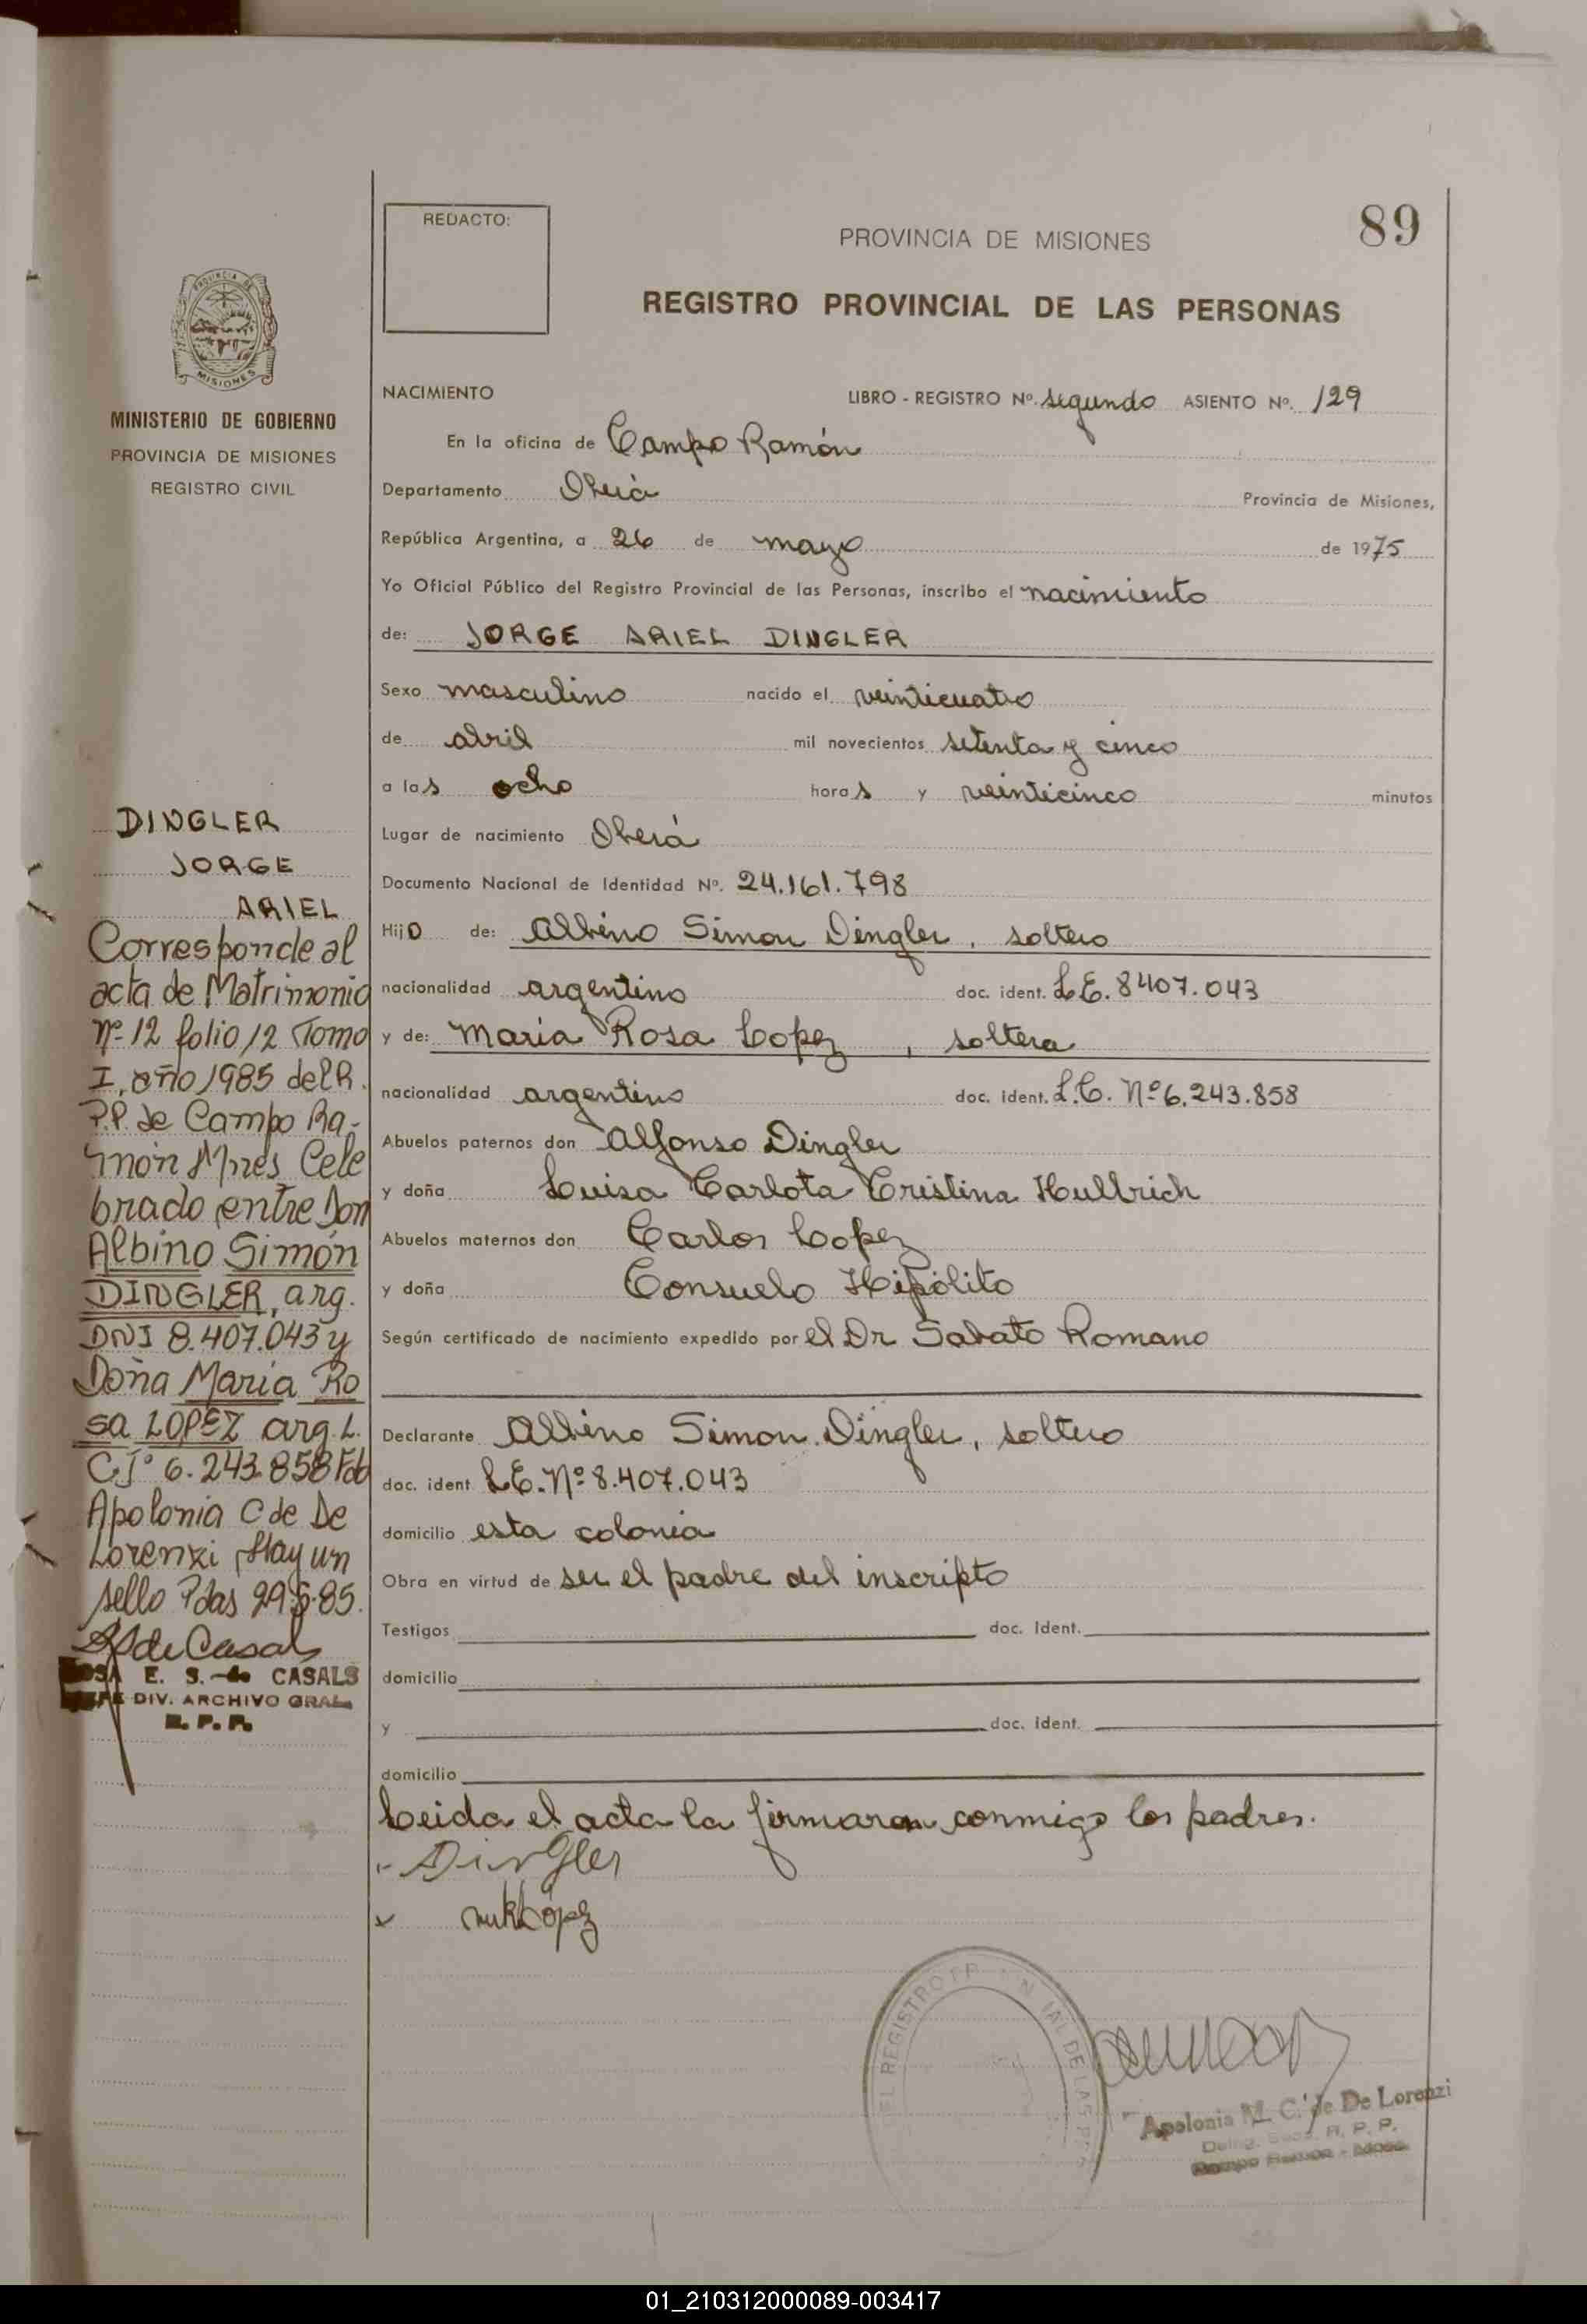 89
REDACTO:
PROVINCIA DE MISIONES
REGISTRO PROVINCIAL DE LAS PERSONAS
PROVINCIA DE
MISIONES
MINISTERIO DE GOBIERNO
PROVINCIA DE MISIONES
REGISTRO CIVIL
NACIMIENTO LIBRO - REGISTRO Nº. segundo ASIENTO Nº. 129
En la oficina de Campo Ramón
Departamento Oberá Provincia de Misiones,
República Argentina, a 26 de mayo de 1975
Yo Oficial Público del Registro Provincial de las Personas, inscribo el nacimiento
de: JORGE ARIEL DINGLER
Sexo masculino nacido el veinticuatro
de abril mil novecientos setenta y cinco
a las ocho horas y veinticinco minutos
Lugar de nacimiento Oberá
Documento Nacional de Identidad Nº. 24.161.798
Hijo de: Albino Simon Dingler, soltero
nacionalidad argentino doc. ident. L.E. 8407.043
y de: Maria Rosa Lopez, soltera
nacionalidad argentino doc. ident. L.C. Nº 6.243.858
Abuelos paternos don Alfonso Dingler
y doña Luisa Carlota Cristina Hullrich
Abuelos maternos don Carlos Lopez
y doña Consuelo Hipólito
Según certificado de nacimiento expedido por el Dr Sabato Romano
Declarante Albino Simon Dingler, soltero
doc. ident L.E. Nº 8.407.043
domicilio esta colonia
Obra en virtud de ser el padre del inscripto
Testigos doc. ident.
domicilio
y doc. ident.
domicilio
Leida el acta la firmaron conmigo los padres.
Dingler
López
DINGLER
JORGE
ARIEL
Corresponde al
acta de Matrimonio
Nº 12 folio 12 Tomo
I, año 1985 del R.
P.P. de Campo Ra-
món Mnes Cele
brado entre Don
Albino Simón
DINGLER, arg.
DNI 8.407.043 y
Doña Maria Ro
sa LOPEZ arg. L.
C Iº 6.243.858 Fdo
Apolonia C de De
Lorenzi, Hay un
sello Pdas 29.5.85.
de Casals
ROSA E. S. de CASALS
JEFE DIV. ARCHIVO GRAL.
R. P. P.
REGISTRO PROVINCIAL DE LAS
Apolonia M. C. de De Lorenzi
R. P. P.
Campo Ramon - Mnes.
01_210312000089-003417